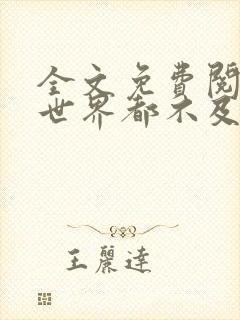 全文免費閱
世界都不及
王麗達